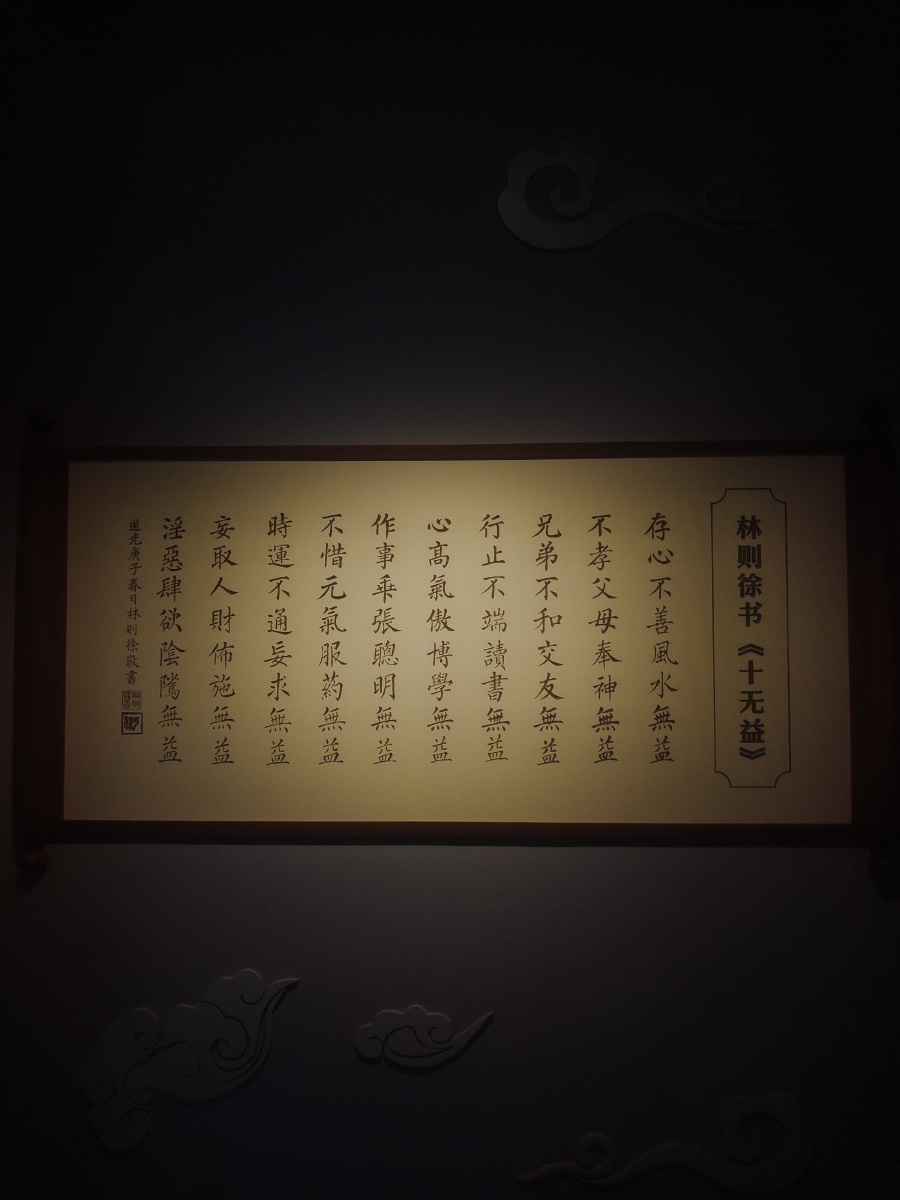 林则徐书《十无益》
存心不善風水無益
不孝父母奉神無益
兄弟不和交友無益
行止不端讀書無益
心高氣傲博學無益
作事乖張聰明無益
不惜元氣服药無益
時運不通妄求無益
妄取人財佈施無益
淫惡肆欲陰騭無益
道光庚子春日林則徐敬書